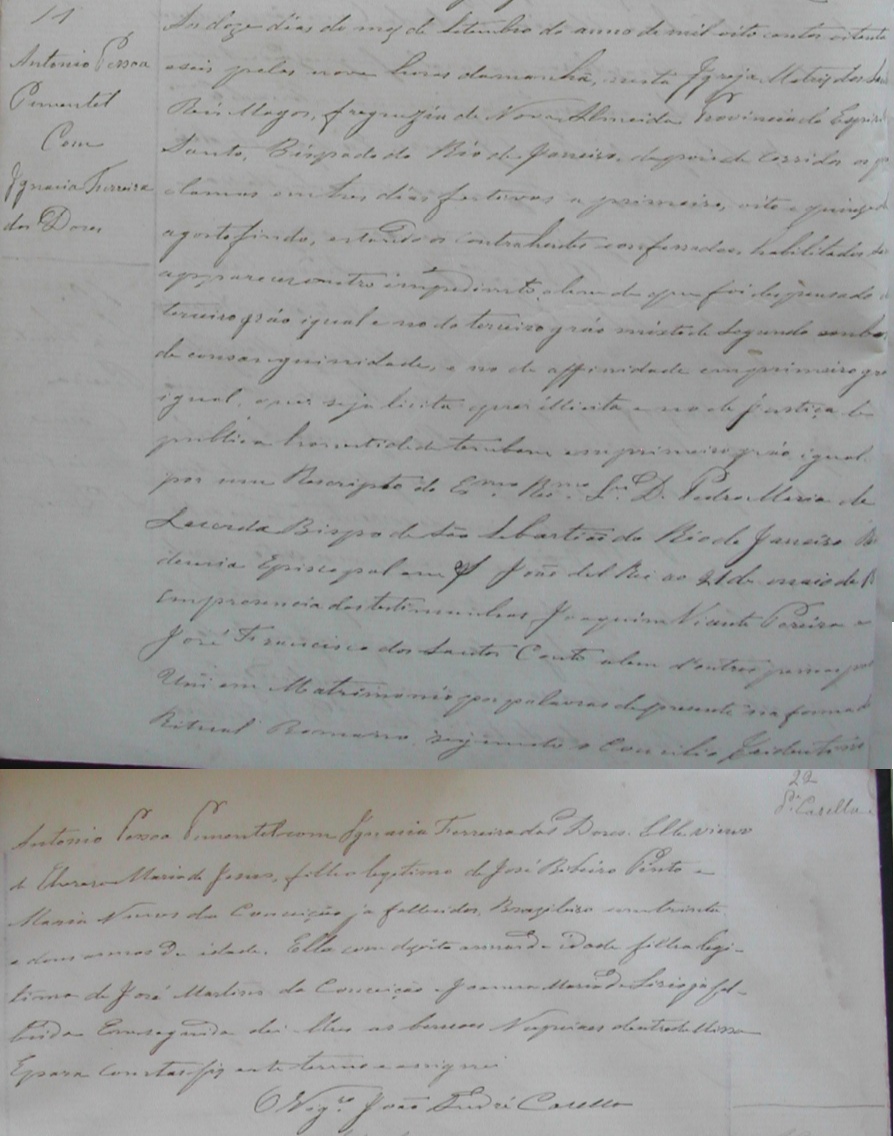 11
Antonio Pessoa
Pimentel
Com
Ignacia Ferreira
das Dores
As doze dias do mez de Setembro do anno de mil oito centos oitenta
e seis pelas nove horas da manhã, nesta Igreja Matriz dos
Reis Magos, freguezia de Nova Almeida Provincia do Espiri
Santo, Bispado do Rio de Janeiro, depois de corridos os
clamas em tres dias festivos a primeiro, oito e quinze
agosto findo, estando os contrahentes confessados, habilitados
apparecer outro impedimento alem do que foi despensado
terceiro gráo igual e no do terceiro gráo mixto de segundo
de consanguinidade, e no de affinidade em primeiro
igual, quer seja licita quer illicita e no de justiça
publica honestidade tambem em primeiro gráo igual
por um Rescripto do Exmo Rmo Snr D. Pedro Maria de
Lacerda Bispo de São Sebastião do Rio de Janeiro
dencia Episcopal em S João del Rei ao 21 de maio de
Em presencia das testimunhas Joaquim Vicente Pereira e
José Francisco dos Santos Couto alem d'outras
Uni em Matrimonio por palavras de presente na forma
Ritual Romano, segundo o Concilio Tridentino
22
Pe Casella
Antonio Pessoa Pimentel com Ignacia Ferreira das Dores. Elle viuvo
d Maria de Jesus, filho legitimo de José Ribeiro Pinto e
Maria Nunes da Conceição ja fallecidos, Brazileiro com trinta
e dous annos de idade. Ella com dezoito annos de idade filha legi-
tima de José Martins da Conceição e Joanna Maria de ja fal-
lecida Em seguida dei lhes as bensoes Nupciaes dentro da Missa
E para constar fiz este termo e assignei
O Vigro João André Casella